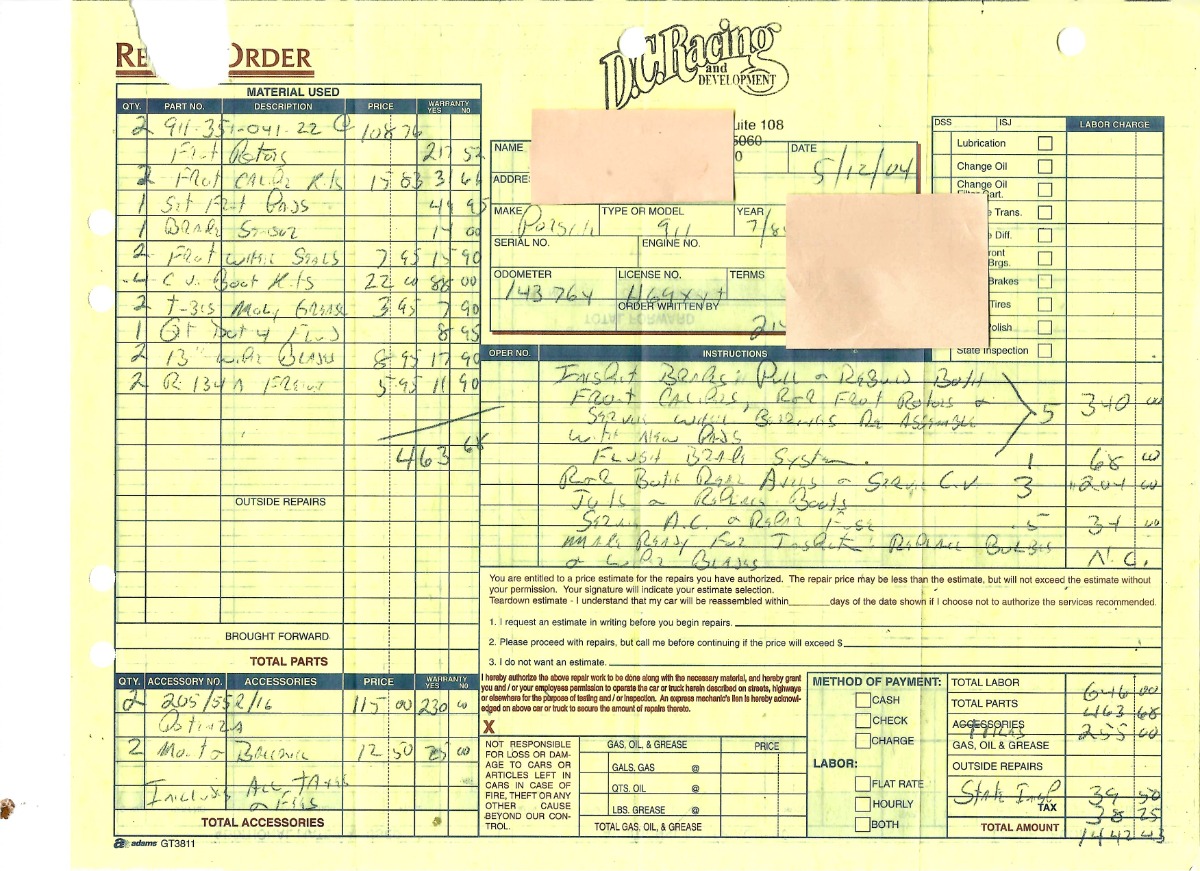 ORDER
D.C. Racing
and
DEVELOPMENT
uite 108
5060
0
MATERIAL USED
QTY. PART NO. DESCRIPTION PRICE WARRANTY YES NO
2 911-351-041-22 @ 108 76
Frnt Rotors 217 52
2 Front Calipr Kits 15 83 31 66
1 Set Frnt Pads 49 95
1 Brake Sensor 14 00
2 Front Seals 7 95 15 90
4 C.V. Boot Kits 22 00 88 00
2 Moly Grease 3 95 7 90
1 Qt Dot 4 Fluid 8 95
2 13" Wipr Blades 8 95 17 90
2 R-134A Freon 5 95 11 90
463 68
OUTSIDE REPAIRS
BROUGHT FORWARD
TOTAL PARTS
QTY. ACCESSORY NO. ACCESSORIES PRICE WARRANTY YES NO
2 205/55Z/16 115 00 230 00
2 Mount & Balance 12 50 25 00
Includes All Taxes
& Fees
TOTAL ACCESSORIES
adams GT3811
NAME
DATE 5/12/04
ADDRE
MAKE Porsche TYPE OR MODEL 911 YEAR
SERIAL NO. ENGINE NO.
ODOMETER 143764 LICENSE NO. TERMS
ORDER WRITTEN BY
DSS ISJ LABOR CHARGE
Lubrication
Change Oil
Change Oil
Cart.
Trans.
Diff.
ront
Brgs.
Brakes
Tires
olish
State Inspection
OPER NO. INSTRUCTIONS
Inspect Brakes: Pull & Rebuild Both
Front Calipers, R&R Front Rotors &
Service Bearings Re Assemble 5 340 00
with New Pads
Flush Brake System. 1 68 00
R&R Both Rear Axles & Service C.V. 3 204 00
Jnts & Replace Boots
Service A.C. & Repair Fuse .5 34 00
Make Ready For Inspect: Replace Bulbs
& Wipr Blades N.C.
You are entitled to a price estimate for the repairs you have authorized. The repair price may be less than the estimate, but will not exceed the estimate without
your permission. Your signature will indicate your estimate selection.
Teardown estimate - I understand that my car will be reassembled within_______days of the date shown if I choose not to authorize the services recommended.
1. I request an estimate in writing before you begin repairs.
2. Please proceed with repairs, but call me before continuing if the price will exceed $
3. I do not want an estimate.
I hereby authorize the above repair work to be done along with the necessary material, and hereby grant
you and / or your employees permission to operate the car or truck herein described on streets, highways
or elsewhere for the purpose of testing and / or inspection. An express mechanic's lien is hereby acknowl-
edged on above car or truck to secure the amount of repairs thereto.
X
NOT RESPONSIBLE
FOR LOSS OR DAM-
AGE TO CARS OR
ARTICLES LEFT IN
CARS IN CASE OF
FIRE, THEFT OR ANY
OTHER CAUSE
BEYOND OUR CON-
TROL.
GAS, OIL, & GREASE PRICE
GALS. GAS @
QTS. OIL @
LBS. GREASE @
TOTAL GAS, OIL, & GREASE
METHOD OF PAYMENT:
CASH
CHECK
CHARGE
LABOR:
FLAT RATE
HOURLY
BOTH
TOTAL LABOR 646 00
TOTAL PARTS 463 68
ACCESSORIES Tires 255 00
GAS, OIL & GREASE
OUTSIDE REPAIRS
State Inspt 39 50
TAX 38 25
TOTAL AMOUNT 1442 43